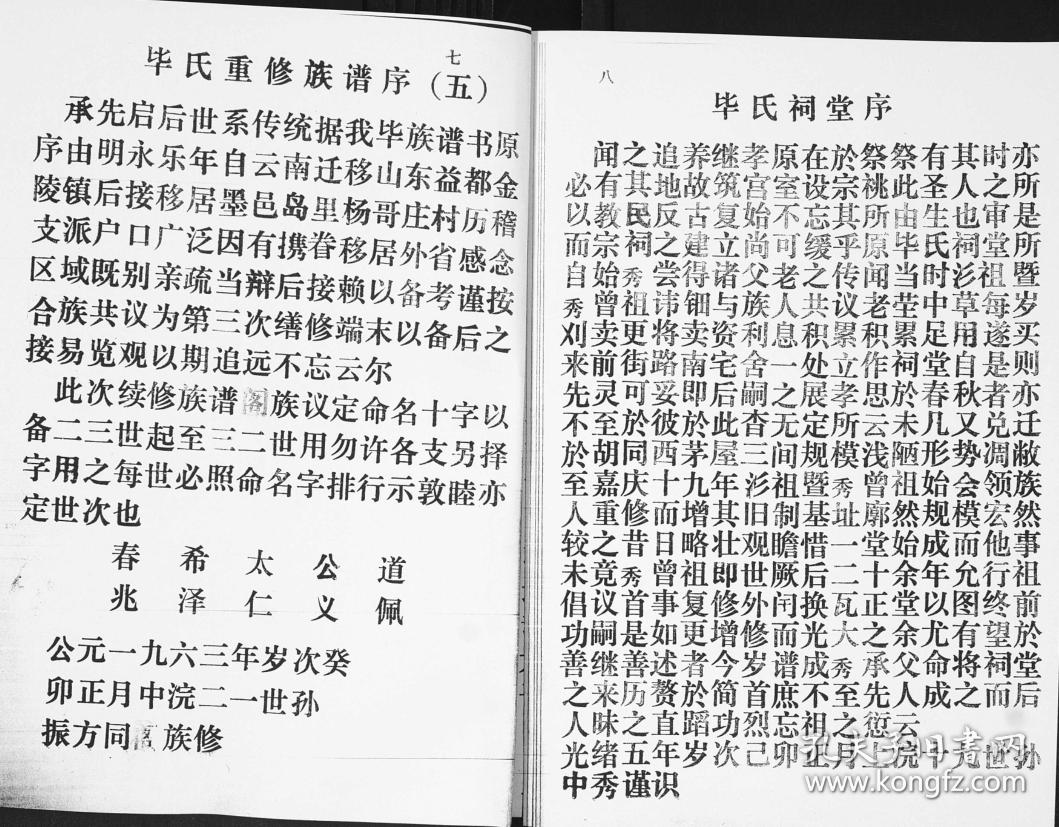 七
毕氏重修族谱序（五）
承先启后世系传统据我毕族谱书原
序由明永乐年自云南迁移山东益都金
陵镇后接移居墨邑岛里杨哥庄村历稽
支派户口广泛因有携眷移居外省感念
区域既别亲疏当辩后接赖以备考谨按
合族共议为第三次缮修端末以备后之
接易览观以期追远不忘云尔
此次续修族谱阁族议定命名十字以
备二三世起至三二世用勿许各支另择
字用之每世必照命名字排行示敦睦亦
定世次也
春希太公道
兆泽仁义佩
公元一九六三年岁次癸
卯正月中浣二一世孙
振方同族修
八
毕氏祠堂序
闻之追养继孝原在於祭祭有其时亦
必有其地故筑宫室设宗祧此圣人之所
以教民反古复始不忘其所由生也审是
而宗祠之建立尚可缓乎原毕氏祠堂所
自始秀尝得诸父老之传闻当时彡祖暨
秀曾祖讳钿与族人共议老茔中草每岁
刈卖更将卖资利息积累积累足用遂买
来前街路南宅舍一处立作祠堂自是则
先灵可妥即后嗣之展孝思於春秋者亦
不至於彼於此杳无定所云未几又兑迁
於胡同西茅屋三间规模浅陋形势凋敝
至嘉庆十九年彡祖暨秀曾祖始会领族
人重修而增其旧制基址廓然规模宏然
较之昔日略壮观瞻惜一堂始成而他事
未竟秀曾祖即世厥后二十余年允行祖
倡议首事复修外闬换瓦正堂以图终前
功嗣是如更增修而光大之余尤有望於
善继善述者今岁谱成秀承父命将祠堂
之来历赘於简首庶不至先人成之而后
人昧之直蹈功烈忘祖之愆云
光绪五年岁次己卯正月上浣十九世孙
中秀谨识
孔夫子旧書网
www.kongfz.com